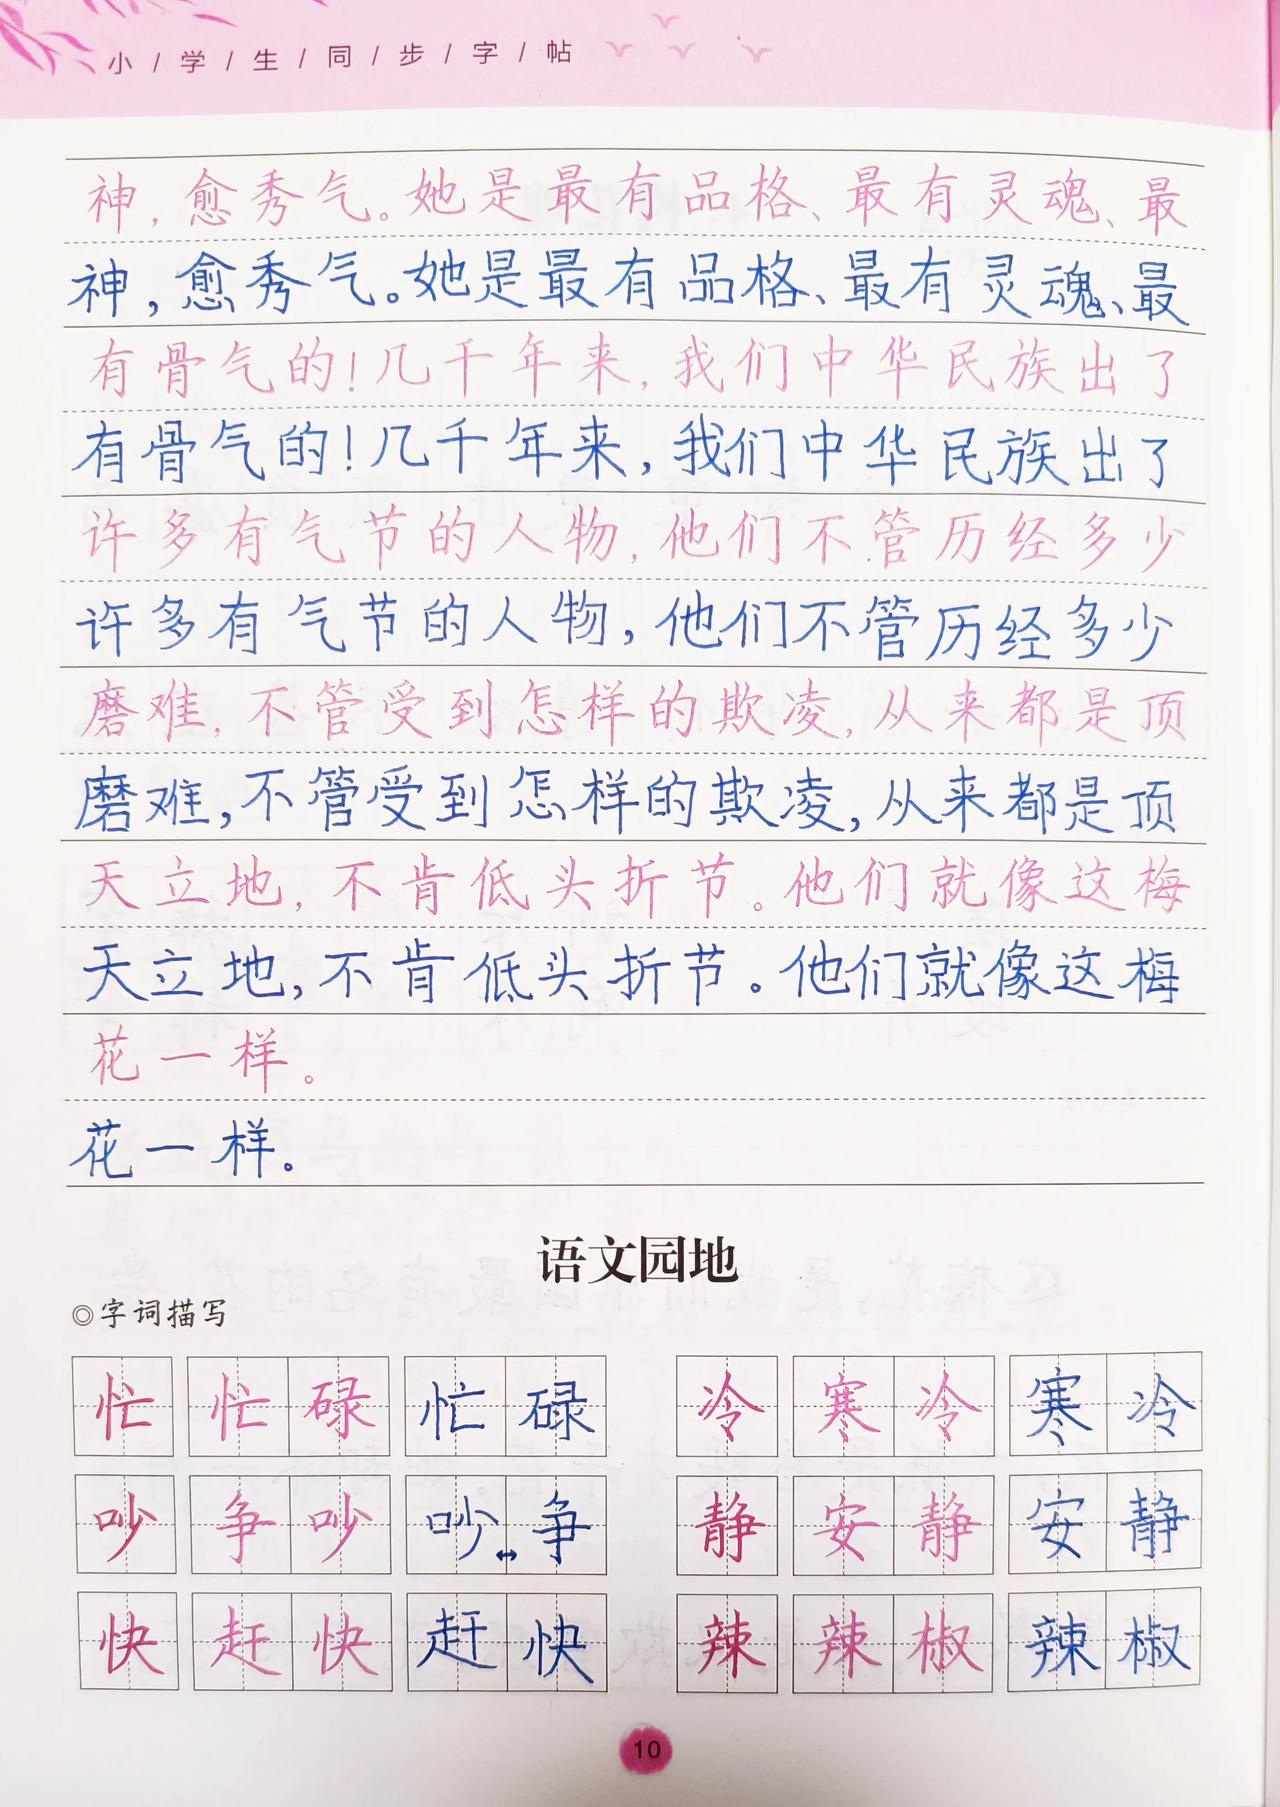 小/学/生/同/步/字/帖
神,愈秀气。她是最有品格、最有灵魂、最
神,愈秀气。她是最有品格、最有灵魂、最
有骨气的!几千年来,我们中华民族出了
有骨气的!几千年来,我们中华民族出了
许多有气节的人物,他们不管历经多少
许多有气节的人物,他们不管历经多少
磨难,不管受到怎样的欺凌,从来都是顶
磨难,不管受到怎样的欺凌,从来都是顶
天立地,不肯低头折节。他们就像这梅
天立地,不肯低头折节。他们就像这梅
花一样。
花一样。
语文园地
◎字词描写
忙 忙碌 忙碌 冷 寒冷 寒冷
吵 争吵 吵↔争 静 安静 安静
快 赶快 赶快 辣 辣椒 辣椒
10